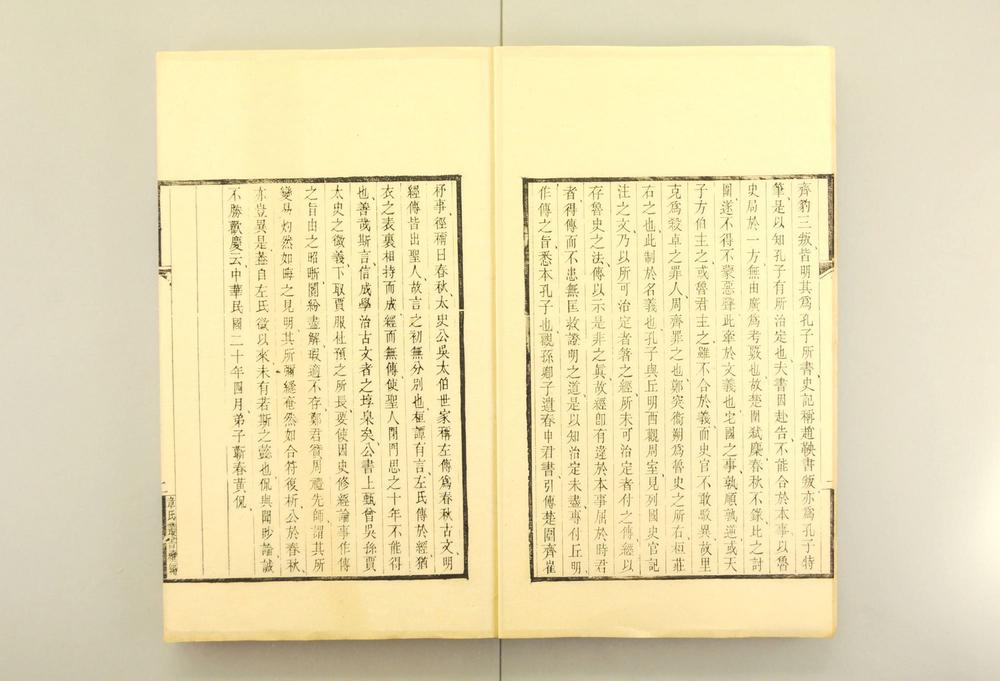 齊豹三叛皆明其爲孔子所書史記稱趙鞅書叛亦爲孔子特
筆是以知孔子有所治定也夫書因赴告不能合於本事以魯
史局於一方無由廣爲考覈也故楚圍弒麇春秋不錄比之討
圍遂不得不蒙惡聲此牽於文義也它國之事孰順孰逆或天
子方伯主之或魯君主之雖不合於義而史官不敢駮異故里
克爲殺卓之罪人周齊罪之也鄭突衞朔爲魯史之所右桓莊
右之也此制於名義也孔子與丘明西觀周室見列國史官記
注之文乃以所可治定者箸之經所未可治定者付之傳經以
存魯史之法傳以示是非之眞故經卽有違於本事屈於時君
者得傳而不患無匡救證明之道是以知治定未盡專付丘明
作傳之旨悉本孔子也觀孫卿子遺春申君書引傳楚圍齊崔
杼事徑稱曰春秋太史公吳太伯世家稱左傳爲春秋古文明
經傳皆出聖人故言之初無分別也桓譚有言左氏傳於經猶
衣之表裏相持而成經而無傳使聖人閉門思之十年不能得
也善哉斯言信成學治古文者之埻臬矣公書上甄曾吳孫賈
太史之微義下取賈服杜預之所長要使因史修經論事作傳
之旨由之昭晣闓紛盡解瑕適不存鄭君贊周禮先師謂其所
變易灼然如晦之見明其所彌縫奄然如合符復析公於春秋
亦豈異是蓋自左氏微以來未有若斯之懿也侃與聞眇論誠
不勝歡慶云中華民國二十年四月弟子蘄春黃侃
二
章氏叢書續編